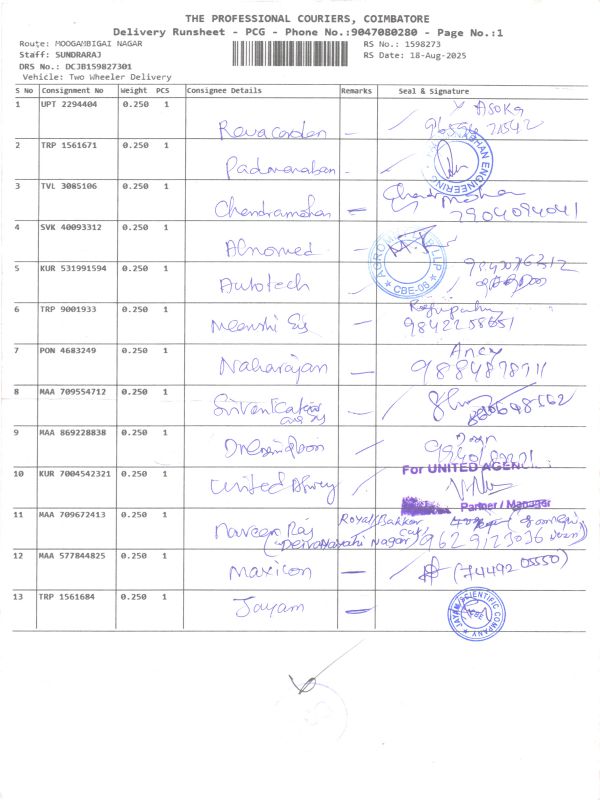 THE PROFESSIONAL COURIERS, COIMBATORE
Delivery Runsheet - PCG - Phone No.:9047080280 - Page No.:1
Route: MOOGAMBIGAI NAGAR
RS No.: 1598273
Staff: SUNDRARAJ
RS Date: 18-Aug-2025
DRS No.: DCJB159827301
Vehicle: Two Wheeler Delivery
S No Consignment No Weight PCS Consignee Details Remarks Seal & Signature
1 UPT 2294404 0.250 1 Asoka
2 TRP 1561671 0.250 1 Padmanaban ENGINEERING
3 TVL 3085106 0.250 1 Chandramohan Chandra Mohan
7904094041
4 SVK 40093312 0.250 1 AGRO LLP
* CBE-06 *
5 KUR 531991594 0.250 1 Autotech
6 TRP 9001933 0.250 1
9842258651
7 PON 4683249 0.250 1 Naharajan Ancy
9884878711
8 MAA 709554712 0.250 1
9 MAA 869228838 0.250 1
10 KUR 7004542321 0.250 1 United For UNITED AGENC
Partner / Manager
11 MAA 709672413 0.250 1 Naveen Raj Royal Bakkar
Nagar) 9629123036
12 MAA 577844825 0.250 1 Maxicon (74492 05550)
13 TRP 1561684 0.250 1 Jayam JAYAM SCIENTIFIC COMPANY CBE